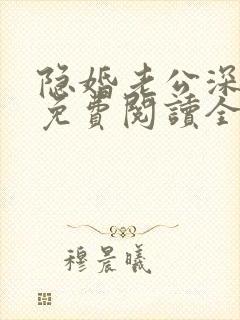 隐婚老公深
免費閱讀全
穆晨曦